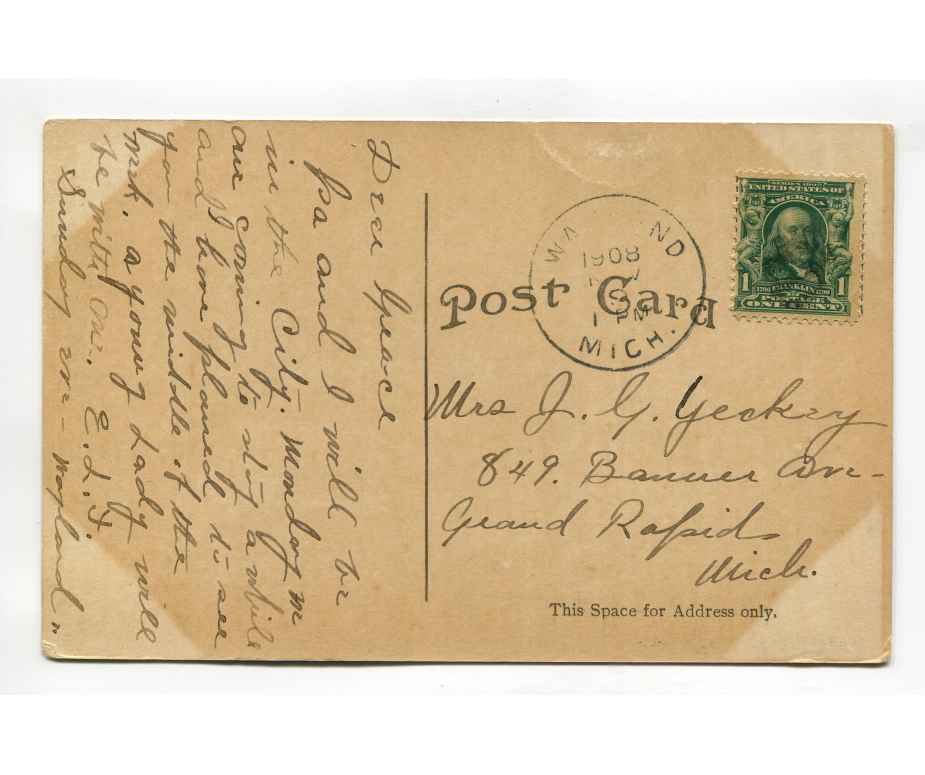 Dear Grace
Pa and I will be
in the City. Monday m
are coming to stay a while
and I have planned to see
you the middle of the
week. a young Lady will
be with me. E. L. F.
Sunday eve - Wayland "
Post Card
WAYLAND
1908
NOV
9
1 PM
MICH.
SERIES 1902
UNITED STATES OF
AMERICA
1 1706 FRANKLIN 1790 1
POSTAGE
ONE CENT
Mrs J. G. Yeckey
849. Banner Ave-
Grand Rapids
Mich.
This Space for Address only.